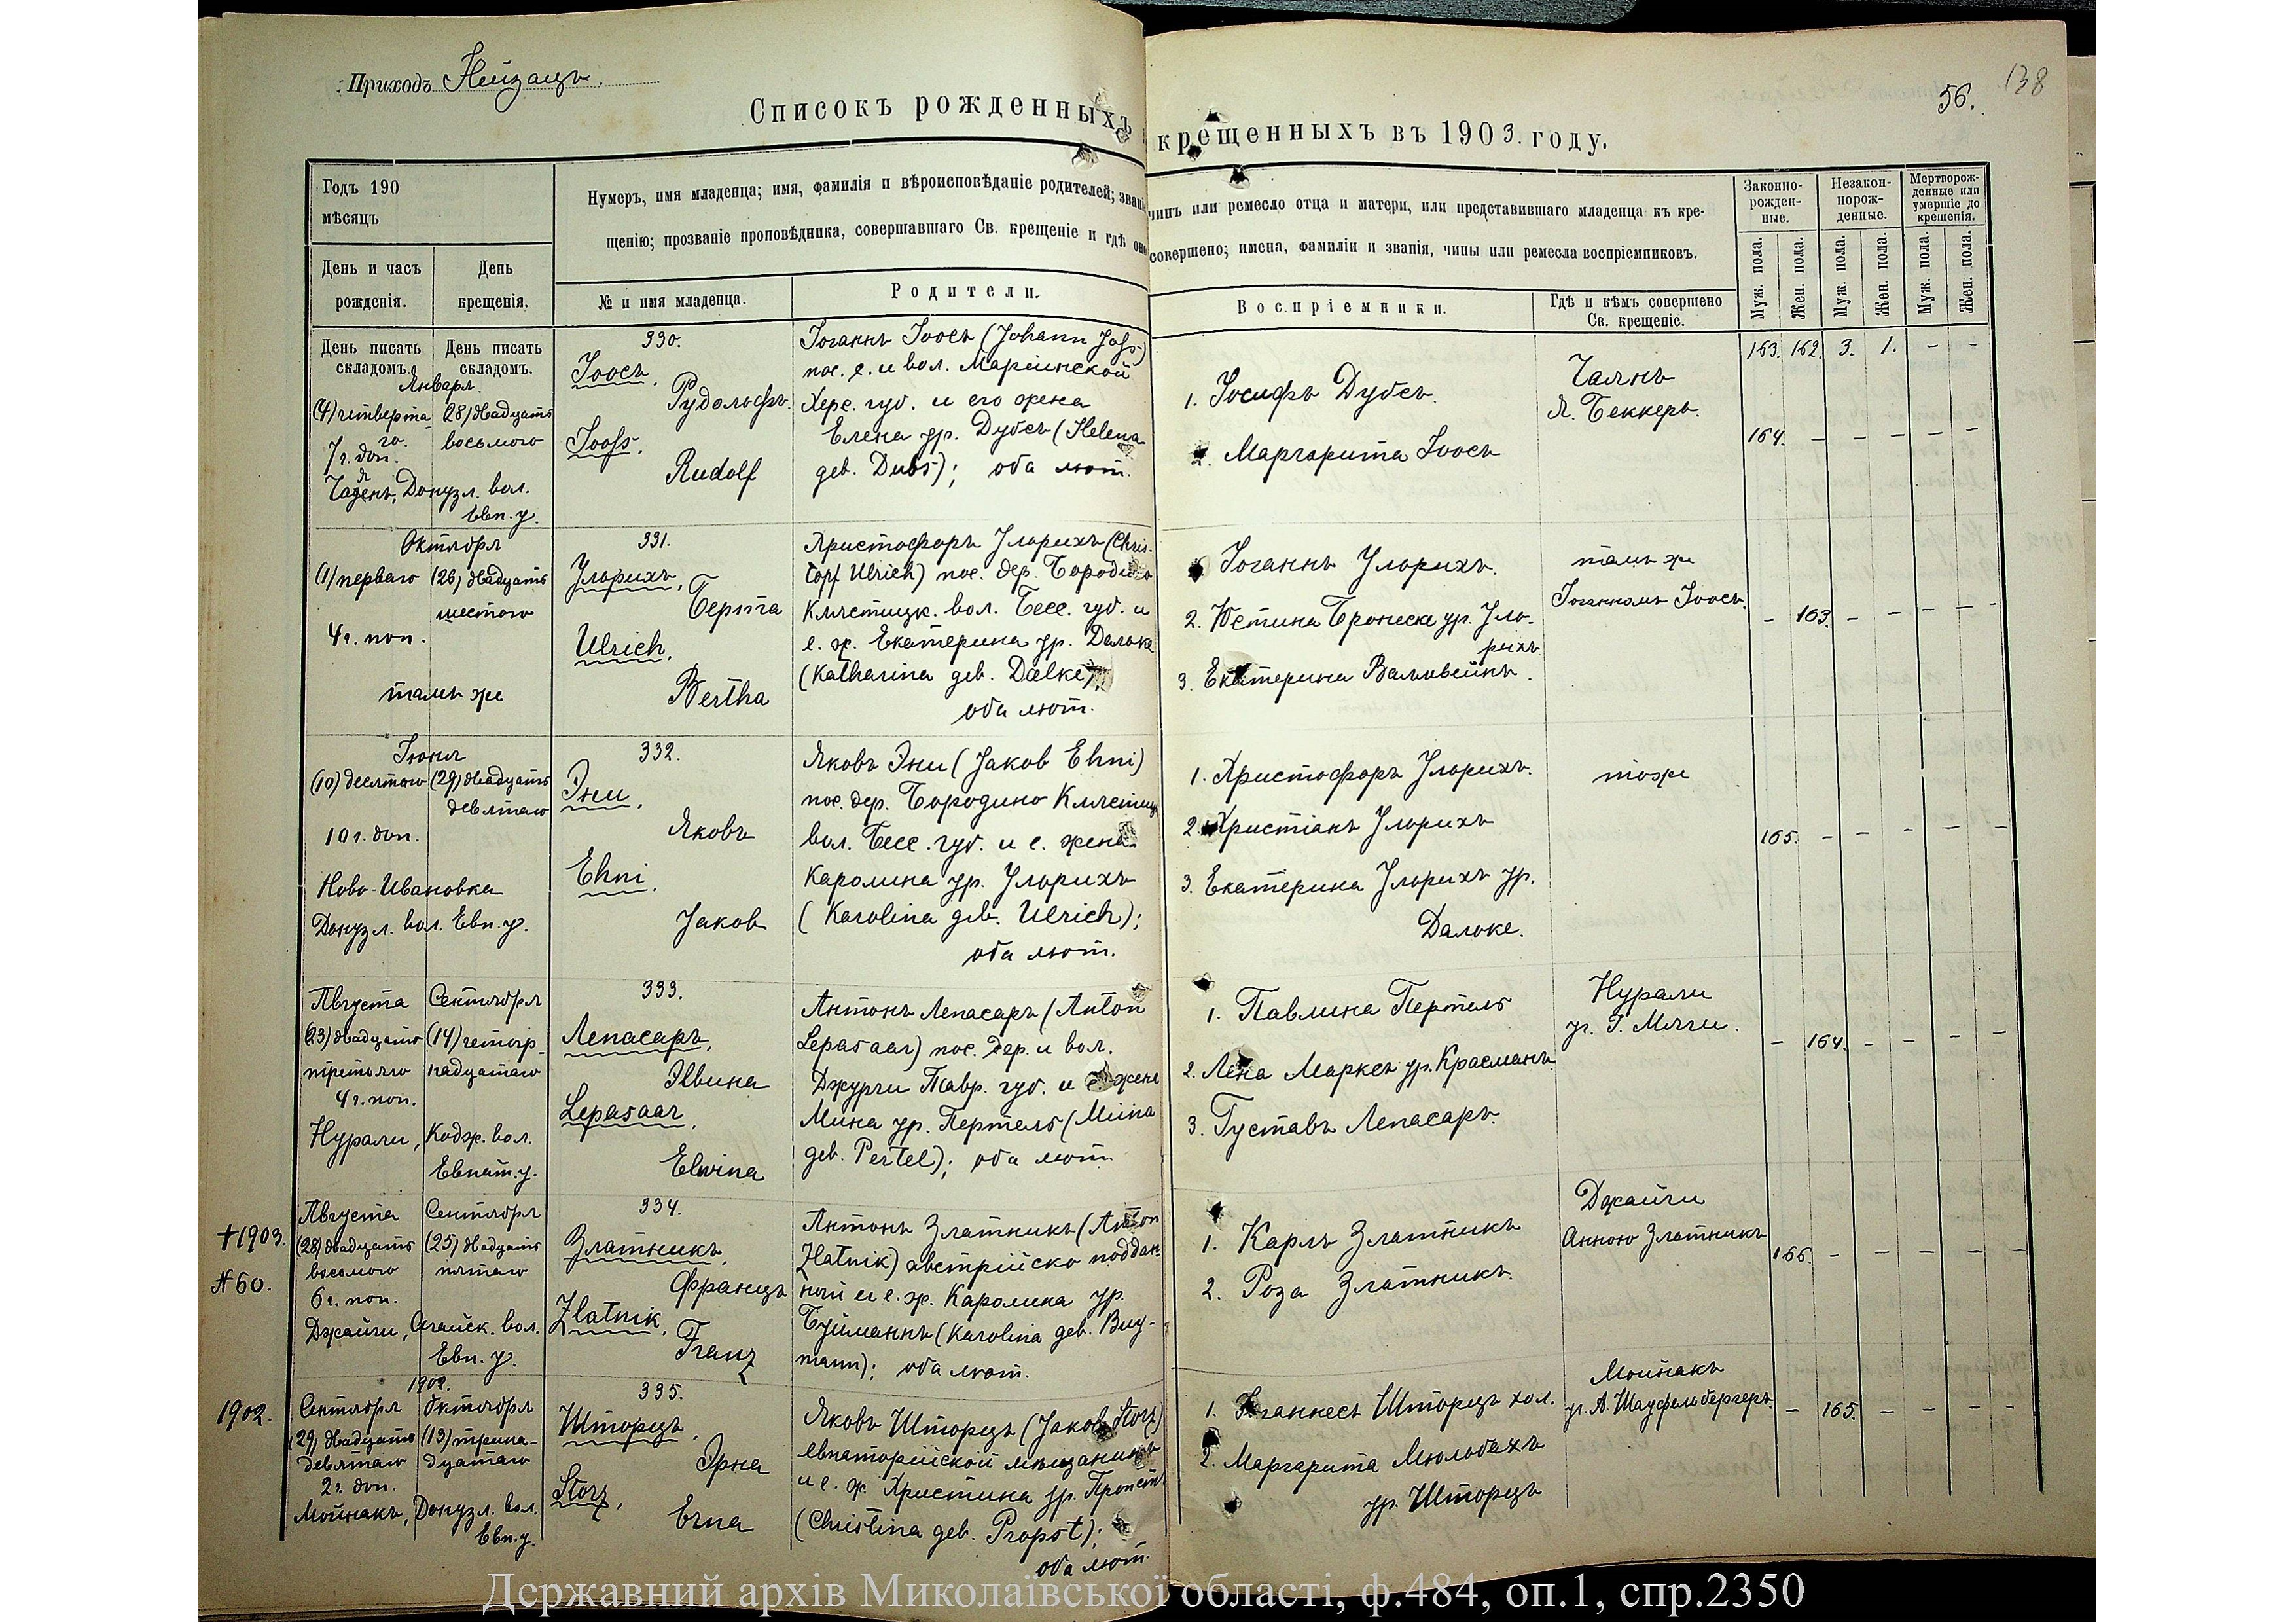 Приходъ Нейзацъ.
138
56.
Списокъ рожденныхъ
крещенныхъ въ 1903. году.
Годъ 190
мѣсяцъ
День и часъ
рожденія.
День
крещенія.
Нумеръ, имя младенца; имя, фамилія и вѣроисповѣданіе родителей; званіе
щенію; прозваніе проповѣдника, совершавшаго Св. крещеніе и гдѣ оно
№ и имя младенца.
Родители.
чинъ или ремесло отца и матери, или представившаго младенца къ кре-
совершено; имена, фамиліи и званія, чины или ремесла воспріемниковъ.
Воспріемники.
Гдѣ и кѣмъ совершено
Св. крещеніе.
Законно-
рожден-
ные.
Незакон-
норож-
денные.
Мертворож-
денные или
умершіе до
крещенія.
Муж. пола.
Жен. пола.
Муж. пола.
Жен. пола.
Муж. пола.
Жен. пола.
День писать
складомъ.
День писать
складомъ.
163. 162. 3. 1. - -
Января
(4) четверта-
го.
7 ч. доп.
28) двадцать
восьмого
Чаянъ, Донузл. вол.
Евп. у.
330.
Іоосъ,
Рудольфъ.
Jooss,
Rudolf
Іоганнъ Іоосъ (Johann Joss)
пос. с. и вол. Маріинской
Херс. губ. и его жена
Елена ур. Дубсъ (Helena
geb. Dubs); оба лют.
1. Іосифъ Дубсъ.
2. Маргарита Іоосъ
Чаянъ
Я. Беккеръ.
164. - - - - -
Октября
(1) перваго
4 ч. поп.
(26) двадцать
шестого
тамъ же
331.
Ульрихъ,
Берта
Ulrich,
Bertha
Христофоръ Ульрихъ (Chris-
topf Ulrich) пос. дер. Бородино
Клястицк. вол. Бесс. губ. и
е. ж. Екатерина ур. Дальке
(Katharina geb. Dalke),
оба лют.
Іоганнъ Ульрихъ.
2. Юстина Бронеска ур. Уль-
рихъ
3. Екатерина Вальвейнъ.
тамъ же
Іоганномъ Іоосъ.
- 163. - - - -
Іюня
(10) десятаго
10 ч. доп.
(29) двадцать
девятаго
Ново-Ивановка
Донузл. вол. Евп. у.
332.
Эни,
Яковъ
Ehni,
Jakob
Яковъ Эни (Jakob Ehni)
пос. дер. Бородино Клястицк
вол. Бесс. губ. и е. жена
Каролина ур. Ульрихъ
(Karolina geb. Ulrich);
оба лют.
1. Христофоръ Ульрихъ.
2. Христіанъ Ульрихъ
3. Екатерина Ульрихъ ур.
Дальке.
тоже
165. - - - - -
Августа
(23) двадцать
третьяго
4 ч. поп.
Сентября
(14) четыр-
надцатаго
Нурали, Кодж. вол.
Евпат. у.
333.
Лепасаръ,
Элвина
Lepasaar,
Elwina
Антонъ Лепасаръ (Anton
Lepasaar) пос. дер. и вол.
Джурчи Тавр. губ. и е жена
Мина ур. Пертель (Miina
geb. Pertel); оба лют.
1. Павлина Пертель
2. Лена Марксъ ур. Красманъ.
3. Густавъ Лепасаръ.
Нурали
уч. Г. Мячи.
- 164. - - - -
†1903.
№60.
Августа
(28) двадцать
восьмого
6 ч. поп.
Сентября
(25) двадцать
пятаго
Джайчи, Агайск. вол.
Евп. у.
334.
Златникъ,
Францъ
Zlatnik,
Franz
Антонъ Златникъ (Anton
Zlatnik) австрійско поддан
ный и е. ж. Каролина ур.
Буйманнъ (Karolina geb. Buy-
mann); оба лют.
1. Карлъ Златникъ
2. Роза Златникъ.
Джайчи
Анною Златникъ
166. - - - - -
1902.
1902.
Сентября
(29) двадцать
девятаго
2 ч. доп.
Октября
(13) трина-
дцатаго
Мойнакъ, Донузл. вол.
Евп. у.
335.
Шторцъ,
Эрна
Storz,
Erna
Яковъ Шторцъ (Jakob Storz)
евпаторійской мѣщанинъ
и е. ж. Христина ур. Пропстъ
(Christina geb. Propst);
оба лют.
1. Іоганнесъ Шторцъ хол.
2. Маргарита Мюльбахъ
ур. Шторцъ
Мойнакъ
уч. А. Шауфельбергеръ
- 165. - - - -
Державний архів Миколаївської області, ф.484, оп.1, спр.2350